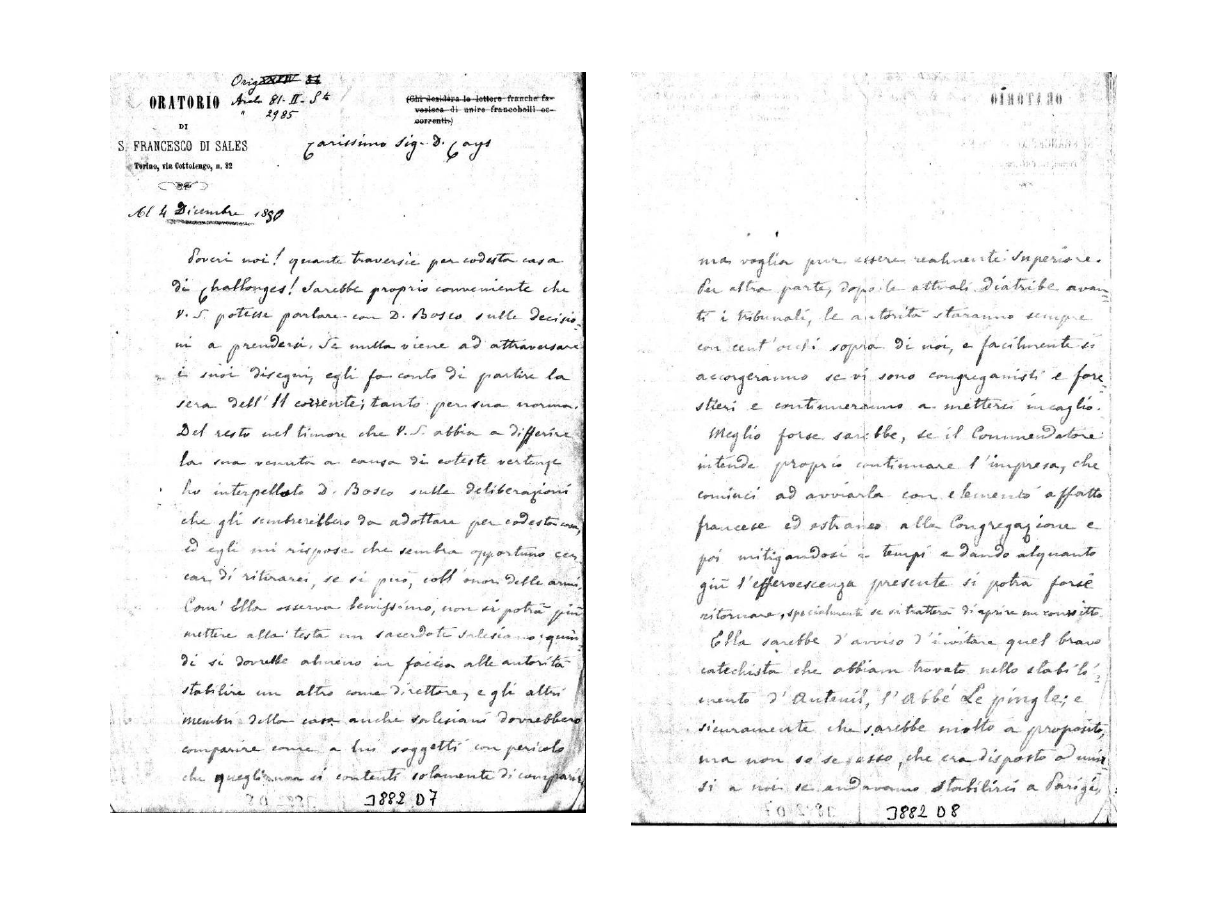 Orig. XXIV 31
Arch 81-II-St
" 2985
ORATORIO
DI
S. FRANCESCO DI SALES
Torino, via Cottolengo, n. 32
(Chi desidera le lettere franche fa-
vorisca di unire francobolli oc-
correnti.)
Carissimo Sig. D. Cays
Il 4 Dicembre 1880
Poveri noi! quante traversie per codesta casa
di Challonges! Sarebbe proprio conveniente che
V. S. potesse parlare con D. Bosco sulle decisio-
ni a prendersi. Se nulla viene ad attraversare
i suoi disegni, egli fa conto di partire la
sera dell' 11 corrente; tanto per sua norma.
Del resto nel timore che V. S. abbia a differire
la sua venuta a causa di coteste vertenze
ho interpellato D. Bosco sulle deliberazioni
che gli sembrerebbero da adottare per codesta casa,
ed egli mi rispose che sembra opportuno cer-
car di ritirarci, se si può, coll' onor delle armi.
Com' Ella osserva benissimo, non si potrà più
mettere alla testa un sacerdote salesiano: quin-
di si dovrebbe almeno in faccia alle autorità
stabilire un altro come direttore, e gli altri
membri della casa anche salesiani dovrebbero
comparire come a lui soggetti con pericolo
che quegli non si contenti solamente di comparir,
J882 D7
ORATORIO
ma voglia pur essere realmente Superiore.
Per altra parte, dopo le attuali diatribe avan-
ti i tribunali, le autorità staranno sempre
con cent' occhi sopra di noi, e facilmente si
accorgeranno se vi sono congreganisti e fore-
stieri e continueranno a metterci incaglio.
Meglio forse sarebbe, se il Commendatore
intende proprio continuare l'impresa, che
cominci ad avviarla con elemento affatto
francese ed estraneo alla Congregazione e
poi mitigandosi i tempi e dando alquanto
giù l'effervescenza presente si potrà forse
ritornare, specialmente se si tratterà di aprire un convitto.
Ella sarebbe d'avviso d'invitare quel bravo
catechista che abbiam trovato nello stabili-
mento d'Auteuil, l'Abbé Le pingle; e
sicuramente che sarebbe molto a proposito,
ma non so se esso, che era disposto ad unir-
si a noi se andavamo stabilirci a Parigi,
J882 D8